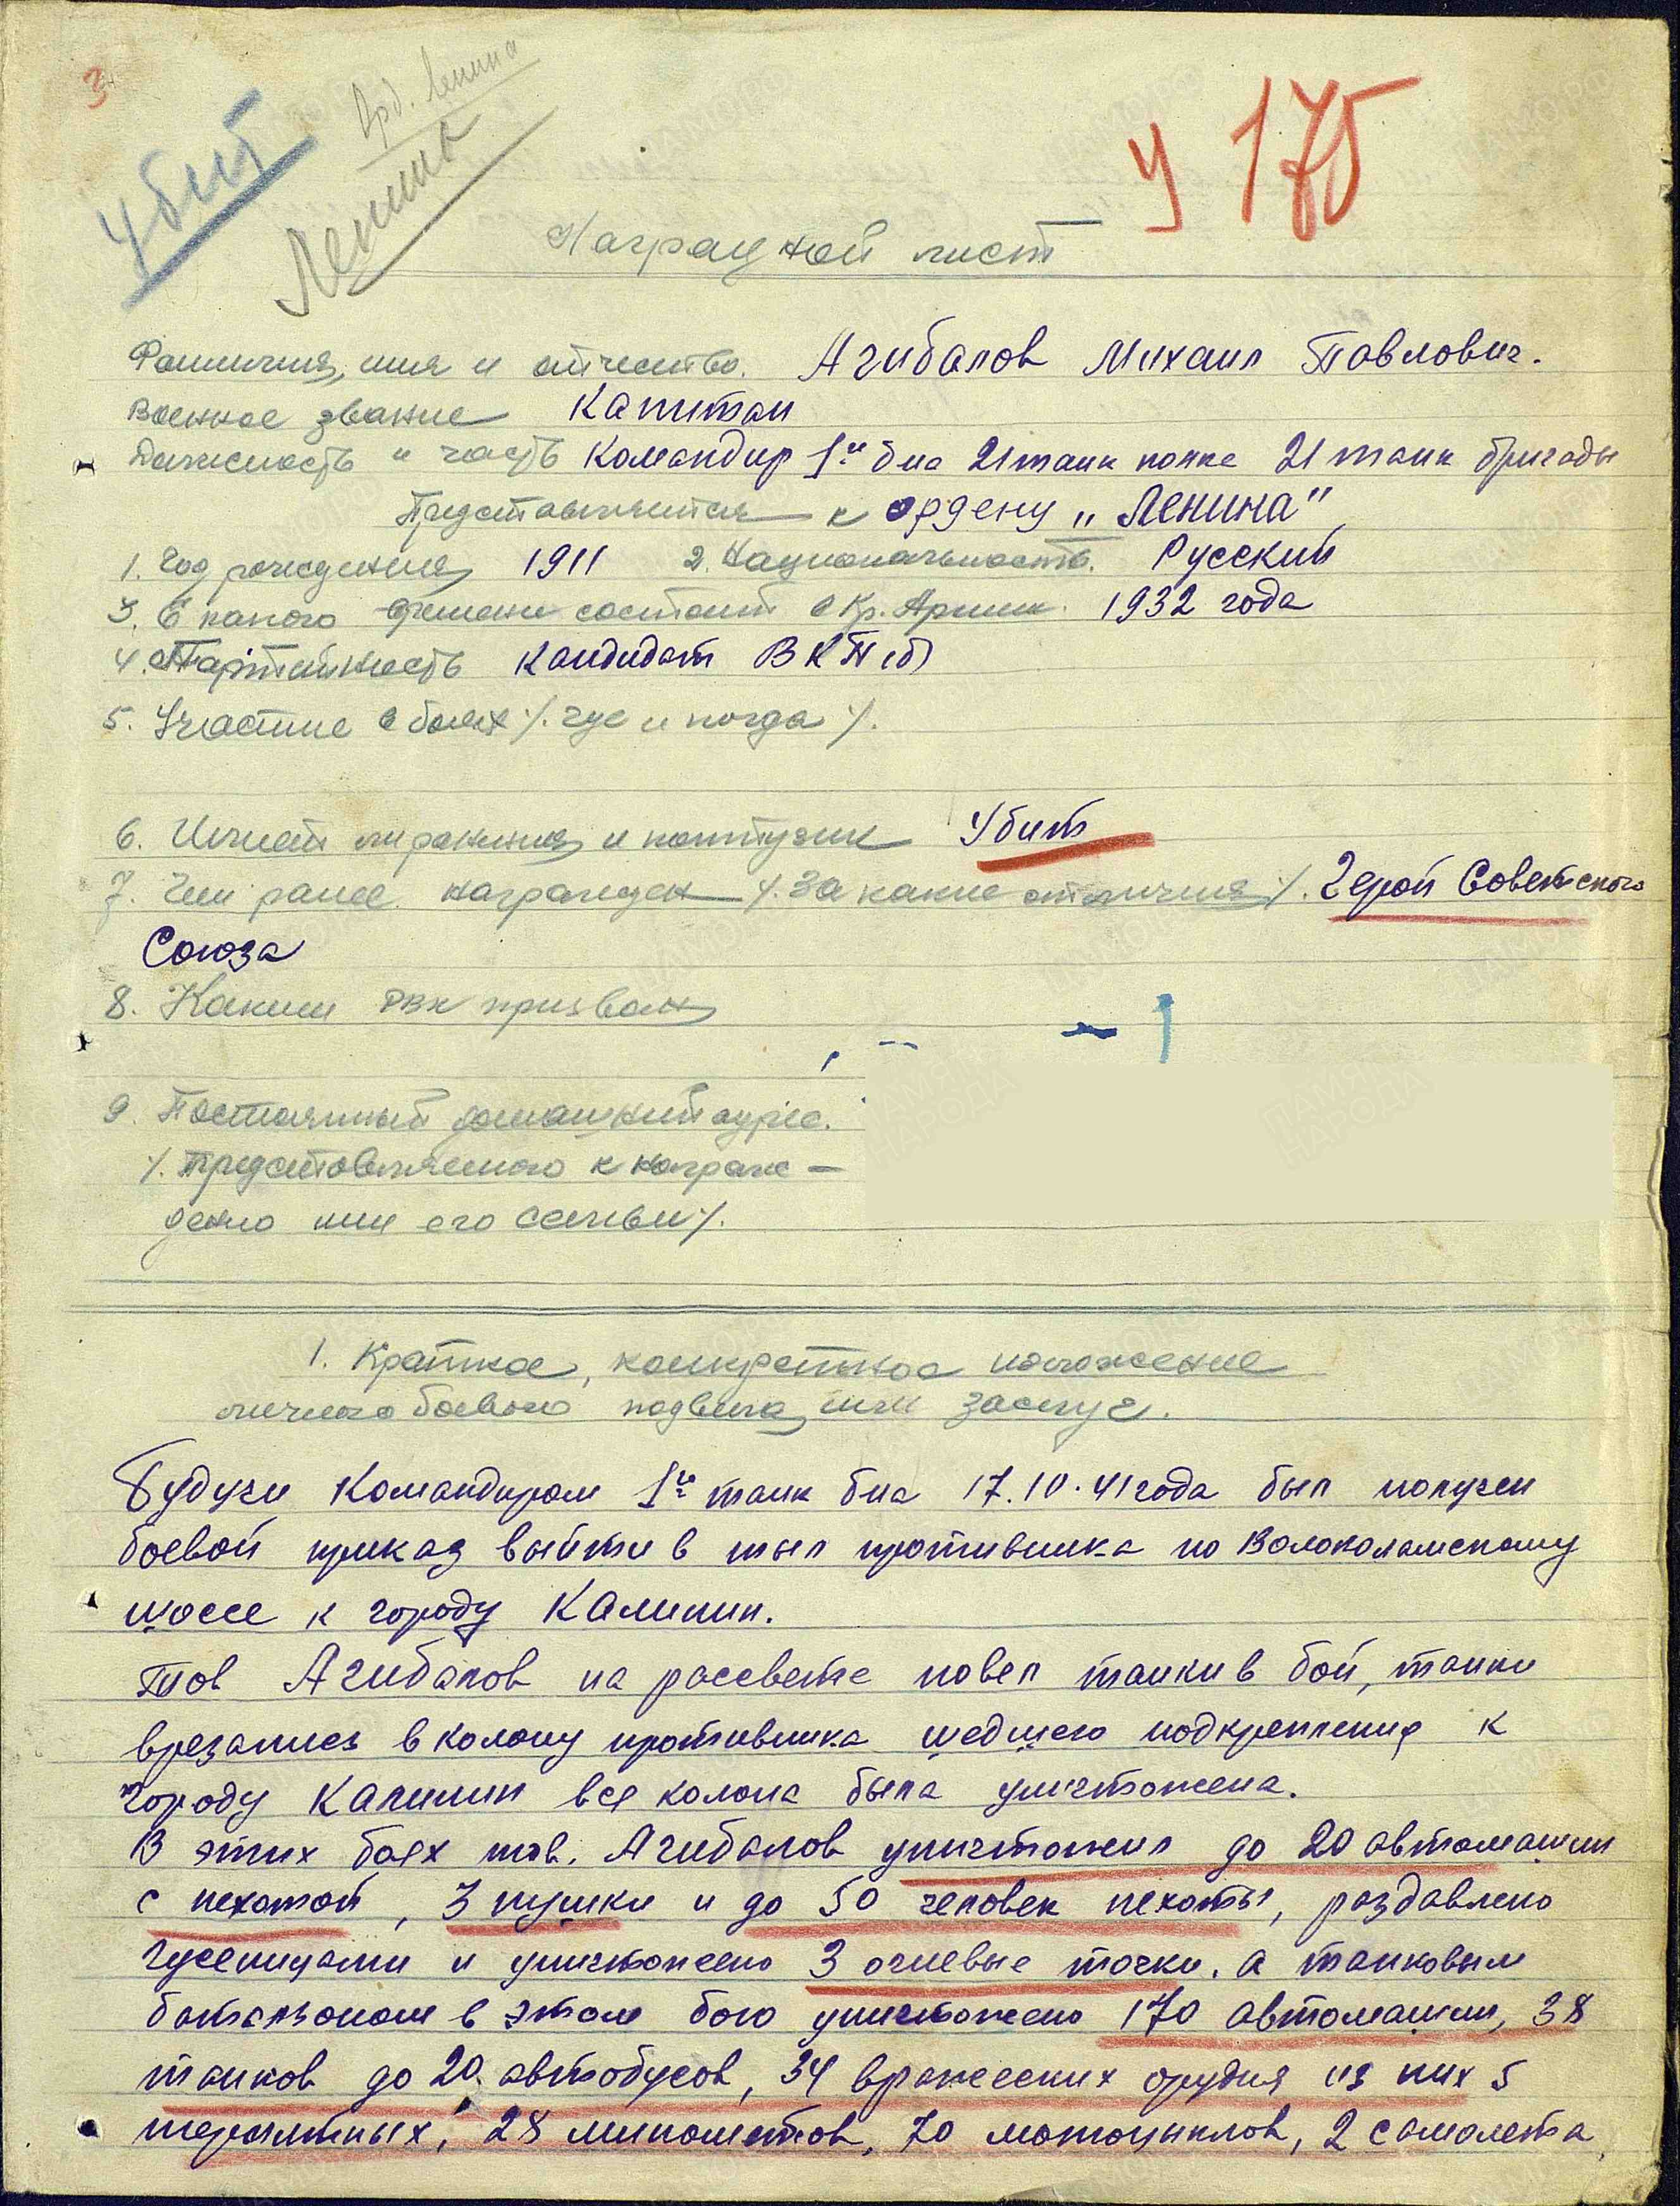 3
Убит
Орд. Ленина
Ленина
У 175
Наградной лист
Фамилия, имя и отчество. Агибалов Михаил Павлович.
Военное звание Капитан
Должность и часть Командир 1го б-на 21 танк полка 21 танк бригады
Представляется к ордену „Ленина"
1. Год рождения 1911 2. Национальность. Русский
3. С какого времени состоит в Кр. Армии. 1932 года
4. Партийность Кандидат ВКП(б)
5. Участие в боях /. где и когда /.
6. Имеет ли ранения и контузии Убит
7. Чем ранее награжден /. За какие отличия /. Герой Советского
Союза
8. Каким РВК призван
9. Постоянный домашний адрес.
/. Представляемого к награж-
дению или его семьи /.
1. Краткое, конкретное изложение
личного боевого подвига или заслуг.
Будучи Командиром 1го танк б-на 17.10.41 года был получен
боевой приказ выйти в тыл противника по Волоколамскому
шоссе к городу Калинин.
Тов Агибалов на рассвете повел танки в бой, танки
врезались в колону противника шедшего подкрепления к
городу Калинин вся колона была уничтожена.
В этих боях тов. Агибалов уничтожил до 20 автомашин
с пехотой, 3 пушки и до 50 человек пехоты, раздавлено
гусеницами и уничтожено 3 огневые точки. а танковым
батальоном в этом бою уничтожено 170 автомашин, 38
танков до 20 автобусов, 34 вражеских орудия из них 5
термитных, 28 минометов, 70 мотоциклов, 2 самолета,